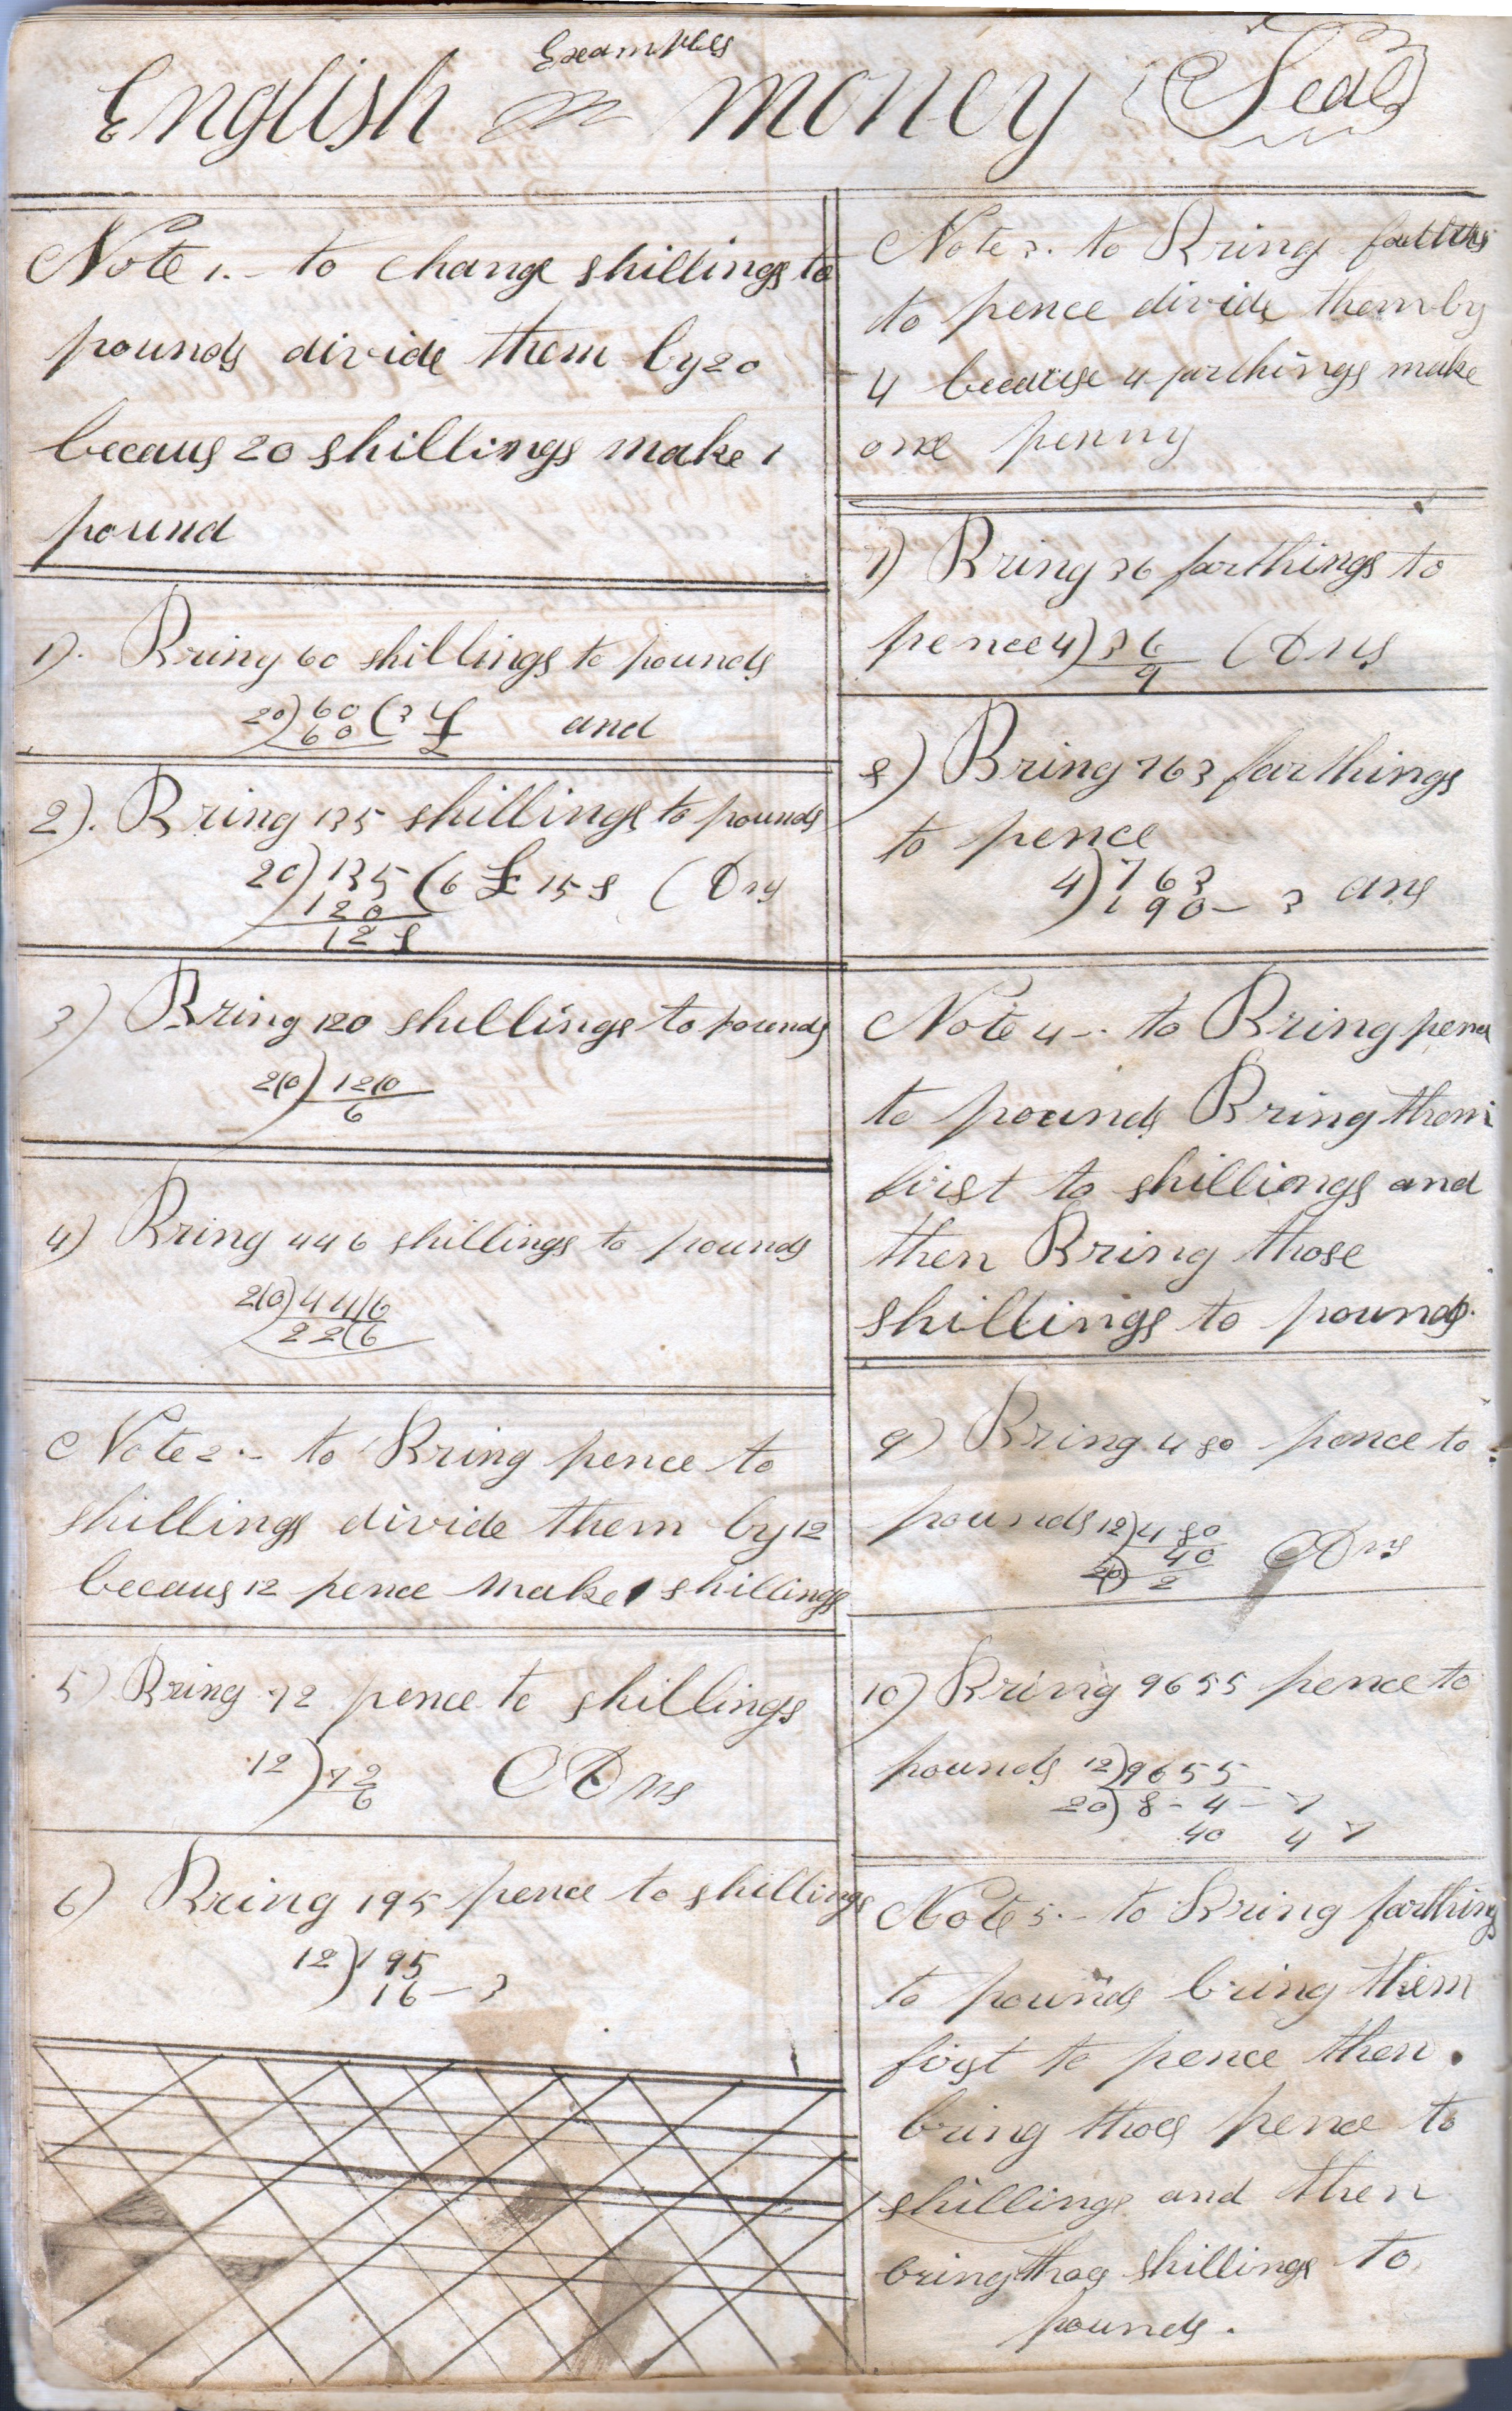 Examples
English in money (Seal)
Note 1.- to change shillings to
pounds divide them by 20
becaus 20 shillings make 1
pound
1). Bring 60 shillings to pounds
20) 60 (3 £ and
60
2). Bring 135 shillings to pounds
20) 135 (6 £ 15 s (Ans
120
12 s
3) Bring 120 shillings to pounds
2(0) 12(0
6
4) Bring 446 shillings to pounds
2(0) 44(6
22(6
Note 2.- to Bring pence to
shillings divide them by 12
becaus 12 pence make 1 shillings
5) Bring 72 pence to shillings
12) 72 Ans
6
6) Bring 195 pence to shillings
12) 195
16 - 3
Note 3. to Bring
to pence divide them by
4 because 4 farthings make
one penny
7) Bring 36 farthings to
pence 4) 36 (Ans
9
8) Bring 763 farthings
to pence
4) 763 ans
190 - 3
Note 4 -. to Bring pence
to pounds Bring them
first to shillings and
then Bring those
shillings to pounds.
9) Bring 480 pence to
pounds 12) 480
40 Ans
20) 2
10) Bring 9655 pence to
pounds 12) 9655
20) 8 - 4 - 7
40 4 7
Note 5.- to Bring farthings
to pounds bring them
first to pence then.
bring thos pence to
shillings and then
bring thos shillings to
pounds.